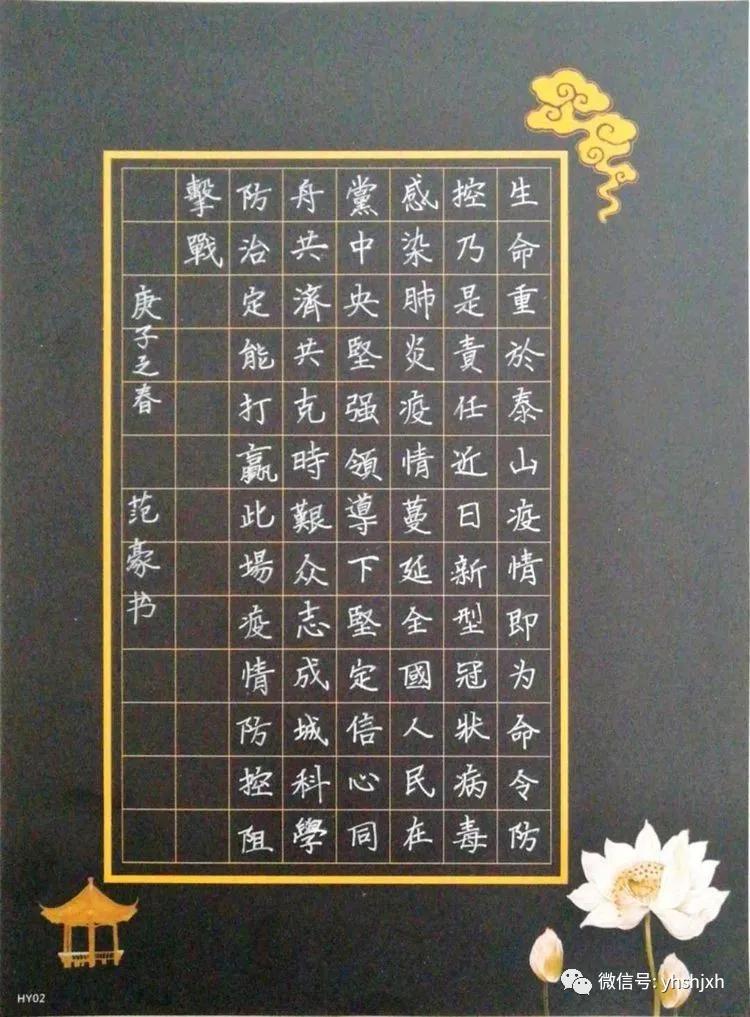 生命重於泰山疫情即为命令防
控乃是責任近日新型冠狀病毒
感染肺炎疫情蔓延全國人民在
黨中央堅强領導下堅定信心同
舟共濟共克時艱众志成城科學
防治定能打贏此場疫情防控阻
擊戰
庚子之春 范豪书
HY02
微信号: yhshjxh